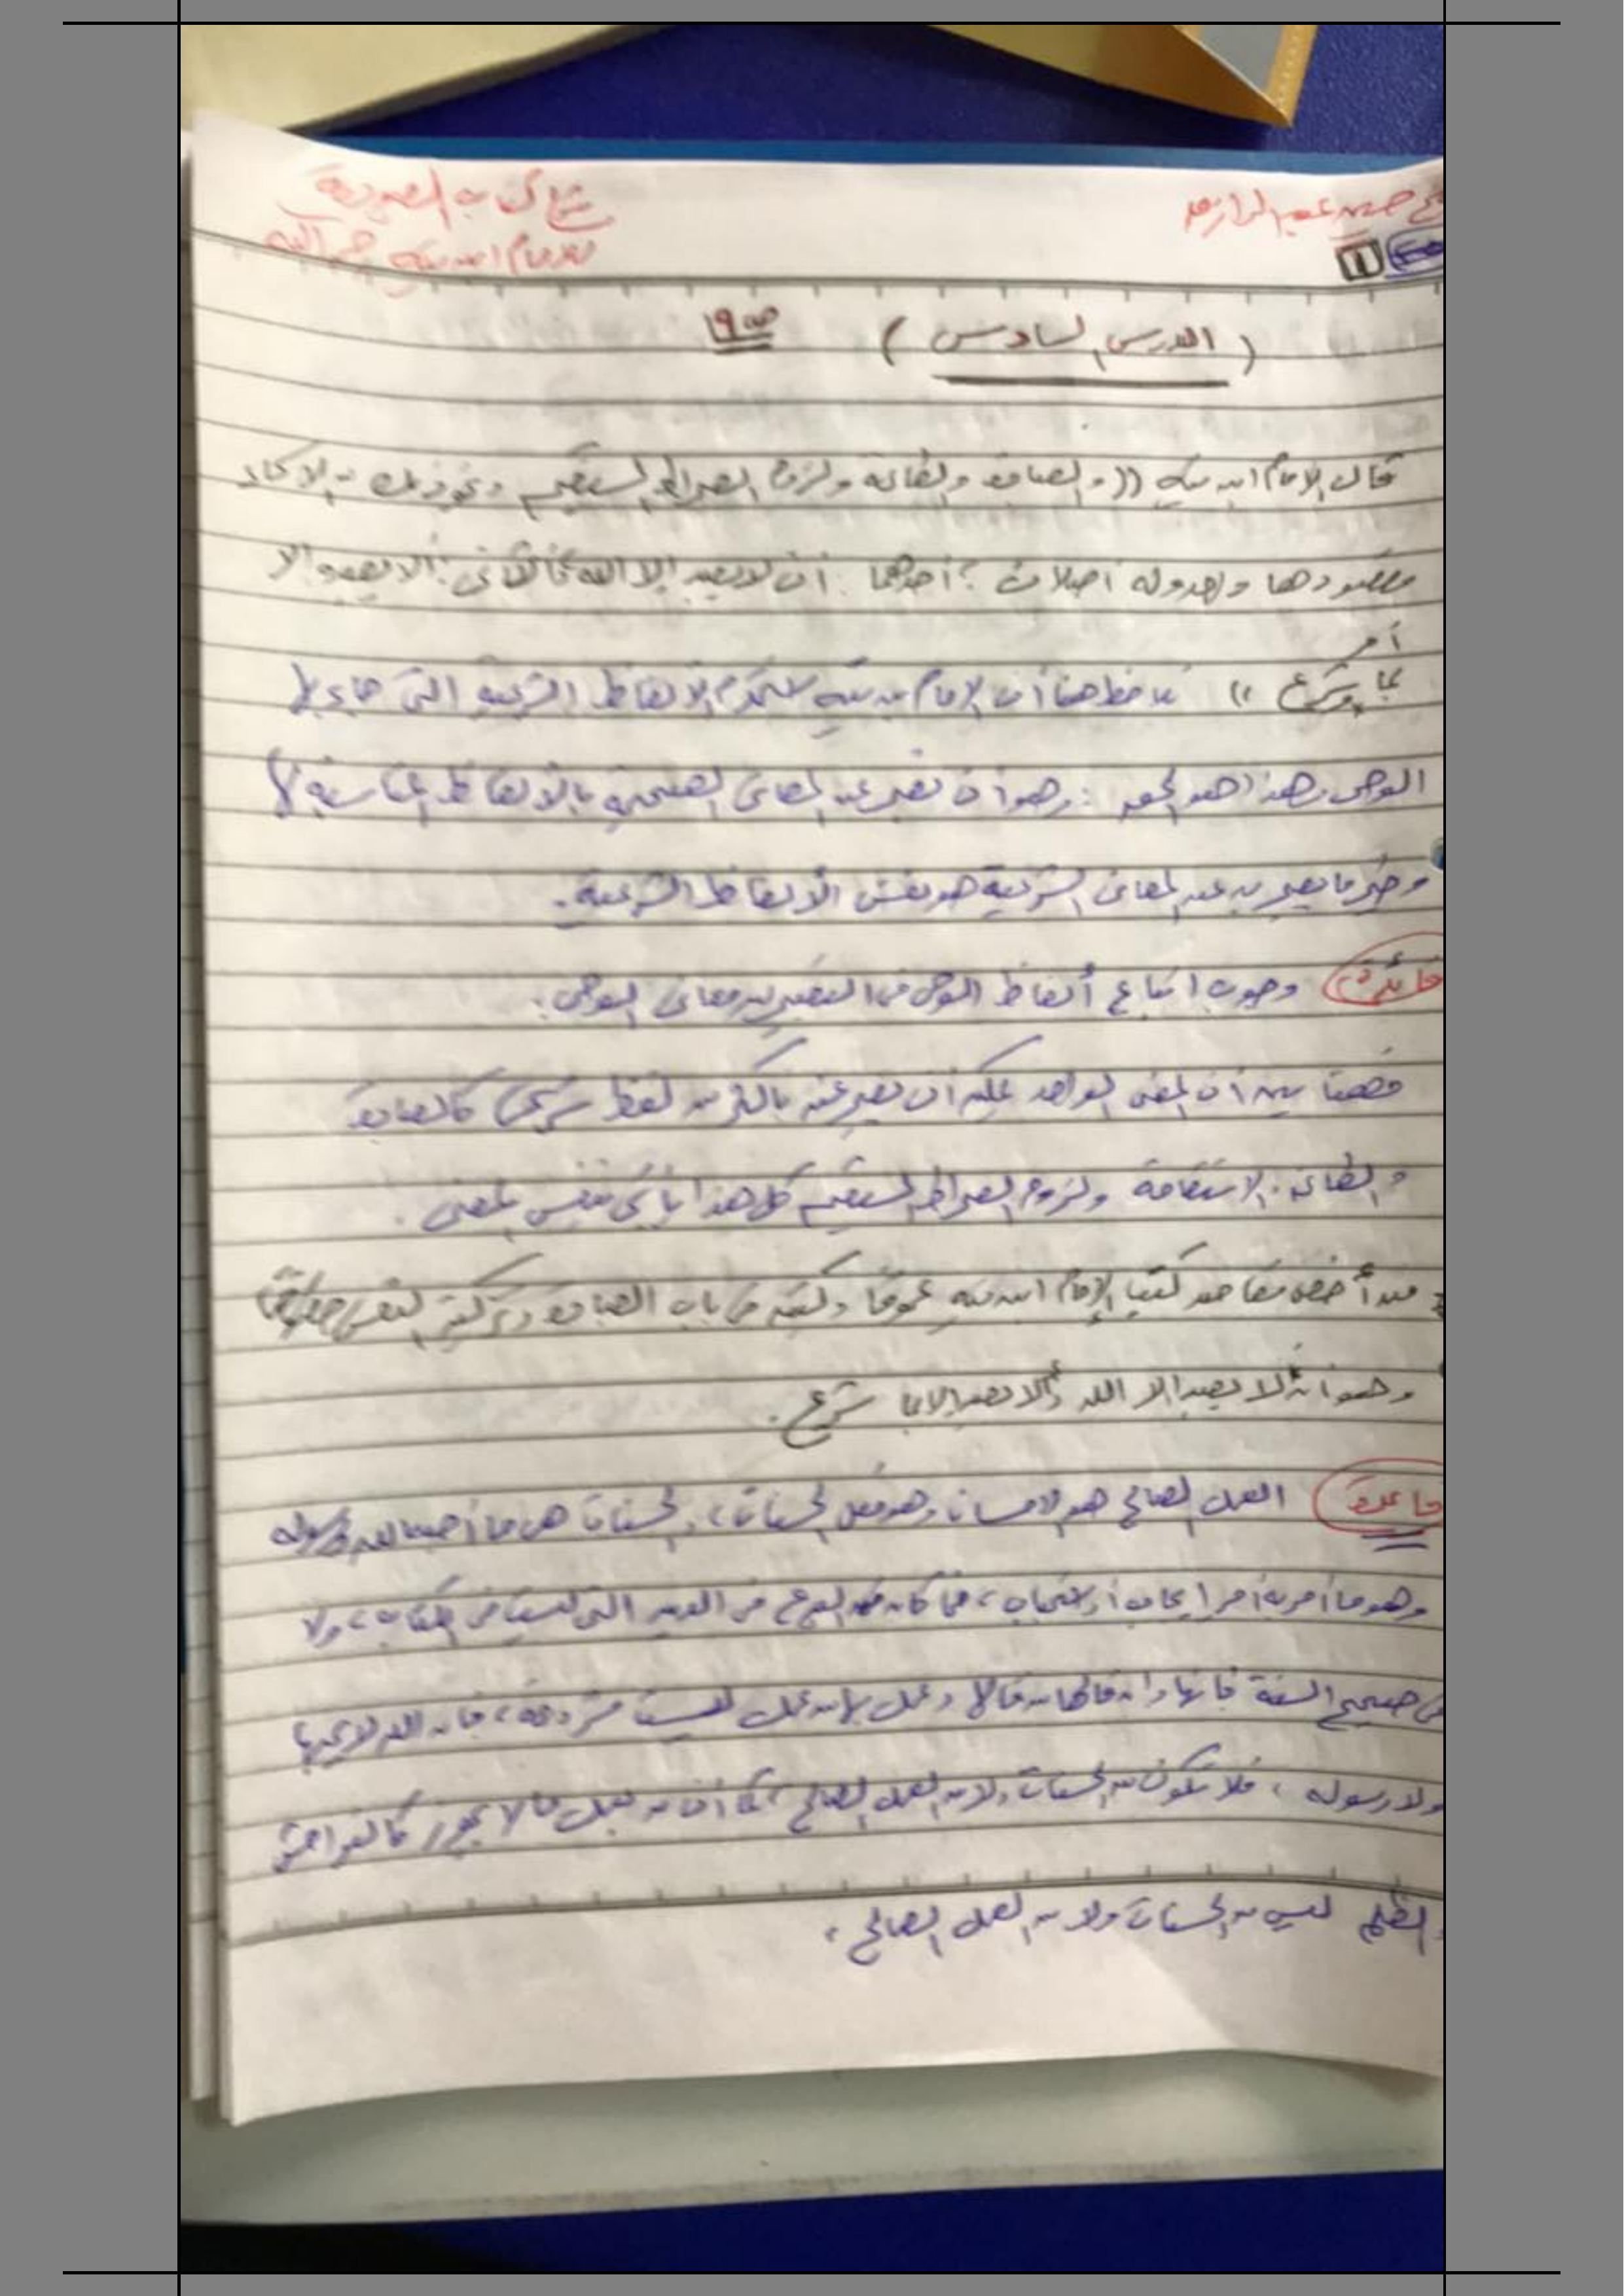 شرح كتاب العبودية
للإمام ابن تيمية رحمه الله
( الدرس السادس ) ص١٩
قال الإمام ابن تيمية (( والعبادة والطاعة ولزوم الصراط المستقيم ونحو ذلك من الأسماء
مقصودها واحد وله أصلان : أحدهما : أن لا يعبد إلا الله والثاني : ألا يعبد إلا
بما أمر وشرع )) نلاحظ هنا أن الإمام ابن تيمية يستخدم الألفاظ الشرعية التي جاء بها
الوحي وهذا هو : وهو أن نعبر عن المعاني الصحيحة بالألفاظ المناسبة لها
وخير ما يعبر به عن المعاني الشرعية هو نفس الألفاظ الشرعية .
فائدة : وجوب اتباع ألفاظ الوحي في التعبير عن معاني الوحي .
فهنا بين أن المعنى الواحد يمكن أن نعبر عنه بأكثر من لفظ شرعي كالعبادة
والطاعة والاستقامة ولزوم الصراط المستقيم كل هذا يأتي بنفس المعنى .
من أخص مقاصد كتب الإمام ابن تيمية عموما وكتبه في باب العبادة وتزكية النفس
وهو أنه لا يعبد إلا الله وألا يعبد إلا بما شرع .
قاعدة العمل الصالح هو الإحسان وهو فعل الحسنات ، والحسنات هي ما أحبه الله ورسوله
وهو ما أمر به أمر إيجاب أو استحباب ، فما كان من البدع في الدين التي ليست في الكتاب ، ولا
في صحيح السنة فإنها وإن قالها من قالها وعمل بها من عمل ليست مشروعة ، فإن الله لا يحبها
ولا رسوله ، فلا تكون من الحسنات ولا من العمل الصالح ، كما أن من يعمل ما لا يجوز كالفواحش
والظلم ليس من الحسنات ولا من العمل الصالح .